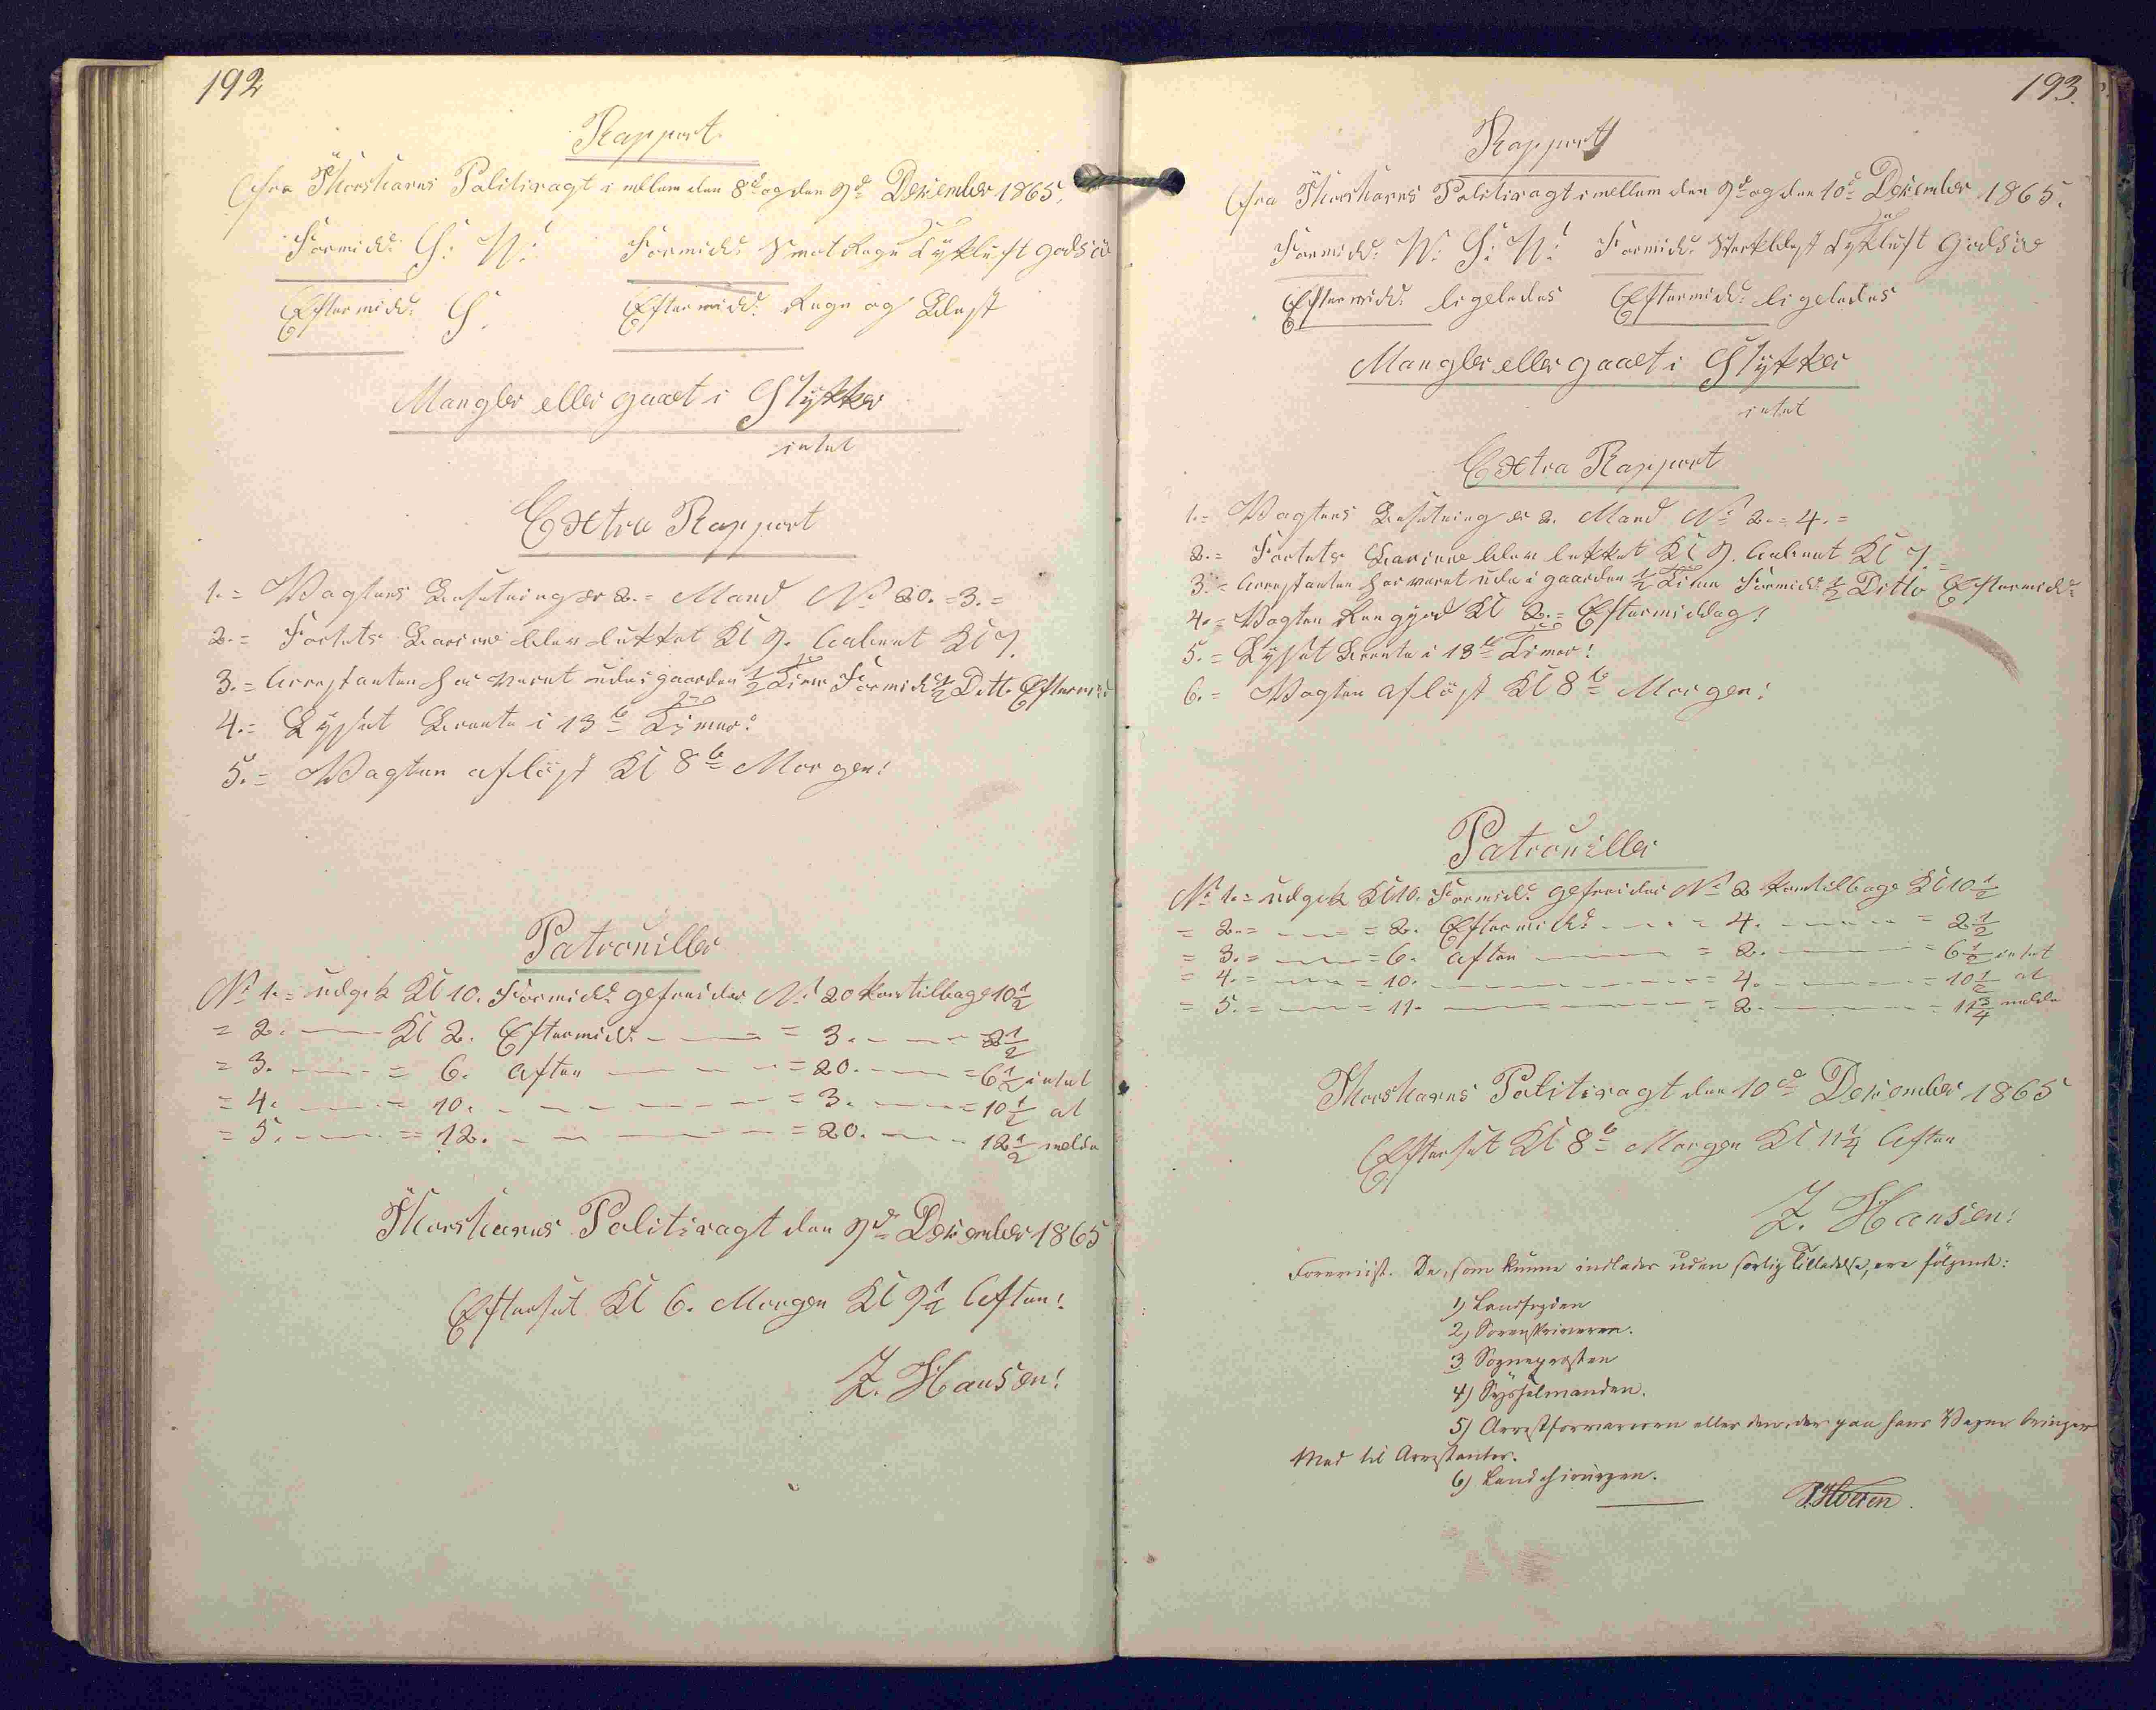 192
Rapport
fra Thorshavns Politivagt i mellem den 8d og den 9d December 1865.
Formidd: S: W: Formidd: Smot Regn Tyk luft god siö
Eftermidd: S. Eftermidd: Regn og Blæst
Mangler eller gaaet i Stykker
intet
Extra Rapport
1.= Vagtens Besetning er 2.= Mand No 20.=3.=
2.= Fortets Bariere blev lukket Kl 9. aabnet Kl 7.
3.= Arrestanten har veret ude i gaarden 1/2 Time Formidd 1/2 Ditto Eftermid
4.= Lyset Brente i 13 Timer:
5.= Vagten aflöst Kl 8 Morgen!
Patrouiller
No 1.= udgik Kl 10. Formidd: gefreider No 20 kom tilbage 10 1/2
= 2. Kl 2. Eftermidd = 3. 2 1/2
= 3. = 6. Aften = 20. = 6 1/2 intet
= 4. = 10. = 3. = 10 1/2 at
= 5. = 12. = 20. 12 1/2 melde
Thorshavns Politivagt den 9d December 1865
Efterset Kl 6. Morgen Kl 9 1/2 Aften!
Z. Hansen!
193.
Rapport
fra Thorshavns Politivagt i mellem den 9d og den 10d December 1865.
Formidd: W: S: W: Formidd: Sterk Blæst Tyk luft God siö
Eftermidd: ligeledes Eftermidd: ligeledes
Mangler eller gaaet i Stykker
intet
Extra Rapport
1.= Vagtens Besetning er 2. Mand No 2.=4.=
2.= Fortets Bariere blev lukket Kl 9. aabnet Kl 7.=
3.= Arrestanten har veret ude i gaarden 1/2 Time Formidd: 1/2 Ditto Eftermidd:
4.= Vagten Rengjord Kl 2.= Eftermiddag!
5.= Lyset Brente i 13 Timer!
6.= Vagten aflöst Kl 8 Morgen!
Patrouiller
No 1.= udgik Kl 10. Formidd: gefreider No 2 kom tilbage Kl 10 1/2
= 2.= = 2. Eftermidd = 4. = 2 1/2
= 3.= = 6. Aften = 2. = 6 1/2 intet
= 4.= = 10. = 4. = 10 1/2 at
= 5.= = 11. = 2. = 11 3/4 melde
Thorshavns Politivagt den 10d December 1865
Efterset Kl 8 Morgen Kl 11 1/4 Aften
Z. Hansen!
Foreviist. De, som kunne indlades uden særlig Tilladelse, ere følgende:
1) Landfogden
2) Sorenskriveren.
3 Sognepræsten
4) Sysselmanden.
5) Arrestforvareren eller den, der paa hans Vegne bringer
Mad til Arrestanter.
6) Landchirurgen.